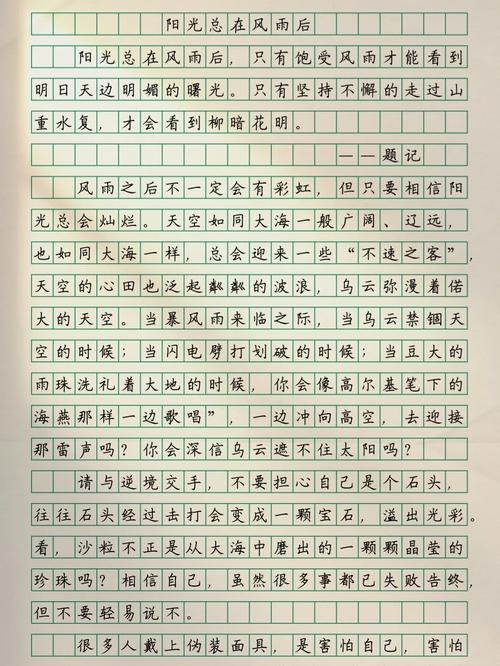 阳光总在风雨后
阳光总在风雨后，只有饱受风雨才能看到
明日天边明媚的曙光。只有坚持不懈的走过山
重水复，才会看到柳暗花明。
——题记
风雨之后不一定会有彩虹，但只要相信阳
光总会灿烂。天空如同大海一般广阔、辽远，
也如同大海一样，总会迎来一些“不速之客”，
天空的心田也泛起粼粼的波浪，乌云弥漫着偌
大的天空。当暴风雨来临之际，当乌云禁锢天
空的时候；当闪电劈打划破的时候；当豆大的
雨珠洗礼着大地的时候，你会像高尔基笔下的
海燕那样一边歌唱”，一边冲向高空，去迎接
那雷声吗？你会深信乌云遮不住太阳吗？
请与逆境交手，不要担心自己是个石头，
往往石头经过击打会变成一颗宝石，溢出光彩。
看，沙粒不正是从大海中磨出的一颗颗晶莹的
珍珠吗？相信自己，虽然很多事都已失败告终，
但不要轻易说不。
很多人戴上伪装面具，是害怕自己，害怕